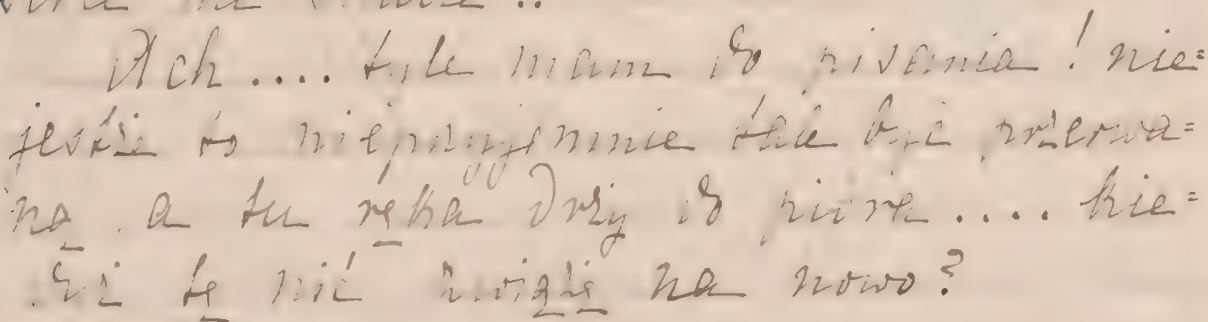 Ach .... tyle mam do pisania! nie=
jestże to nieprzyjemnie tak być przerwa=
ną a tu ręka drży do pióra .... kie=
dyż tę nić zwiążę na nowo?